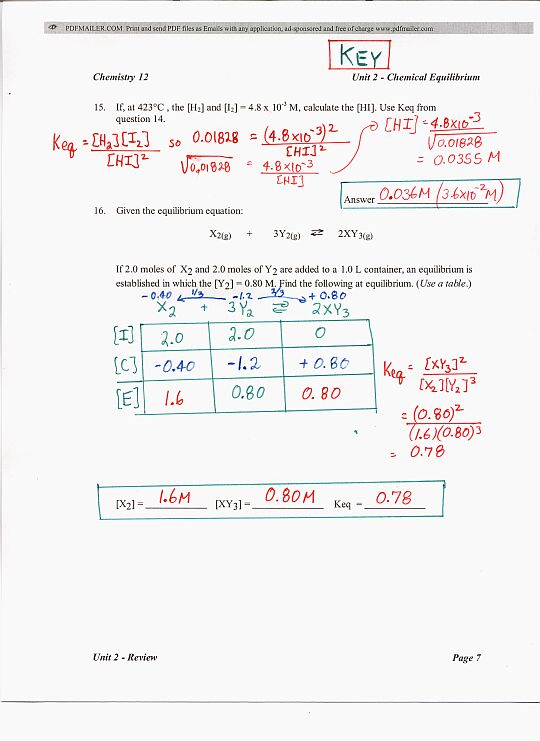 PDFMAILER.COM Print and send PDF files as Emails with any application, ad-sponsored and free of charge www.pdfmailer.com
KEY
Chemistry 12 Unit 2 - Chemical Equilibrium
15. If, at 423°C , the [H₂] and [I₂] = 4.8 x 10⁻³ M, calculate the [HI]. Use Keq from
question 14.
Keq = [H₂][I₂] / [HI]² so 0.01828 = (4.8x10⁻³)² / [HI]²
√0.01828 = 4.8x10⁻³ / [HI]
→ [HI] = 4.8x10⁻³ / √0.01828
= 0.0355 M
Answer 0.036M (3.6x10⁻²M)
16. Given the equilibrium equation:
X₂(g) + 3Y₂(g) ⇌ 2XY₃(g)
If 2.0 moles of X₂ and 2.0 moles of Y₂ are added to a 1.0 L container, an equilibrium is
established in which the [Y₂] = 0.80 M. Find the following at equilibrium. (Use a table.)
-0.40 1/3 -1.2 2/3 +0.80
X₂ + 3Y₂ ⇌ 2XY₃
[I] 2.0 2.0 0
[C] -0.40 -1.2 +0.80
[E] 1.6 0.80 0.80
Keq = [XY₃]² / [X₂][Y₂]³
= (0.80)² / (1.6)(0.80)³
= 0.78
[X₂] = 1.6M [XY₃] = 0.80M Keq = 0.78
Unit 2 - Review Page 7